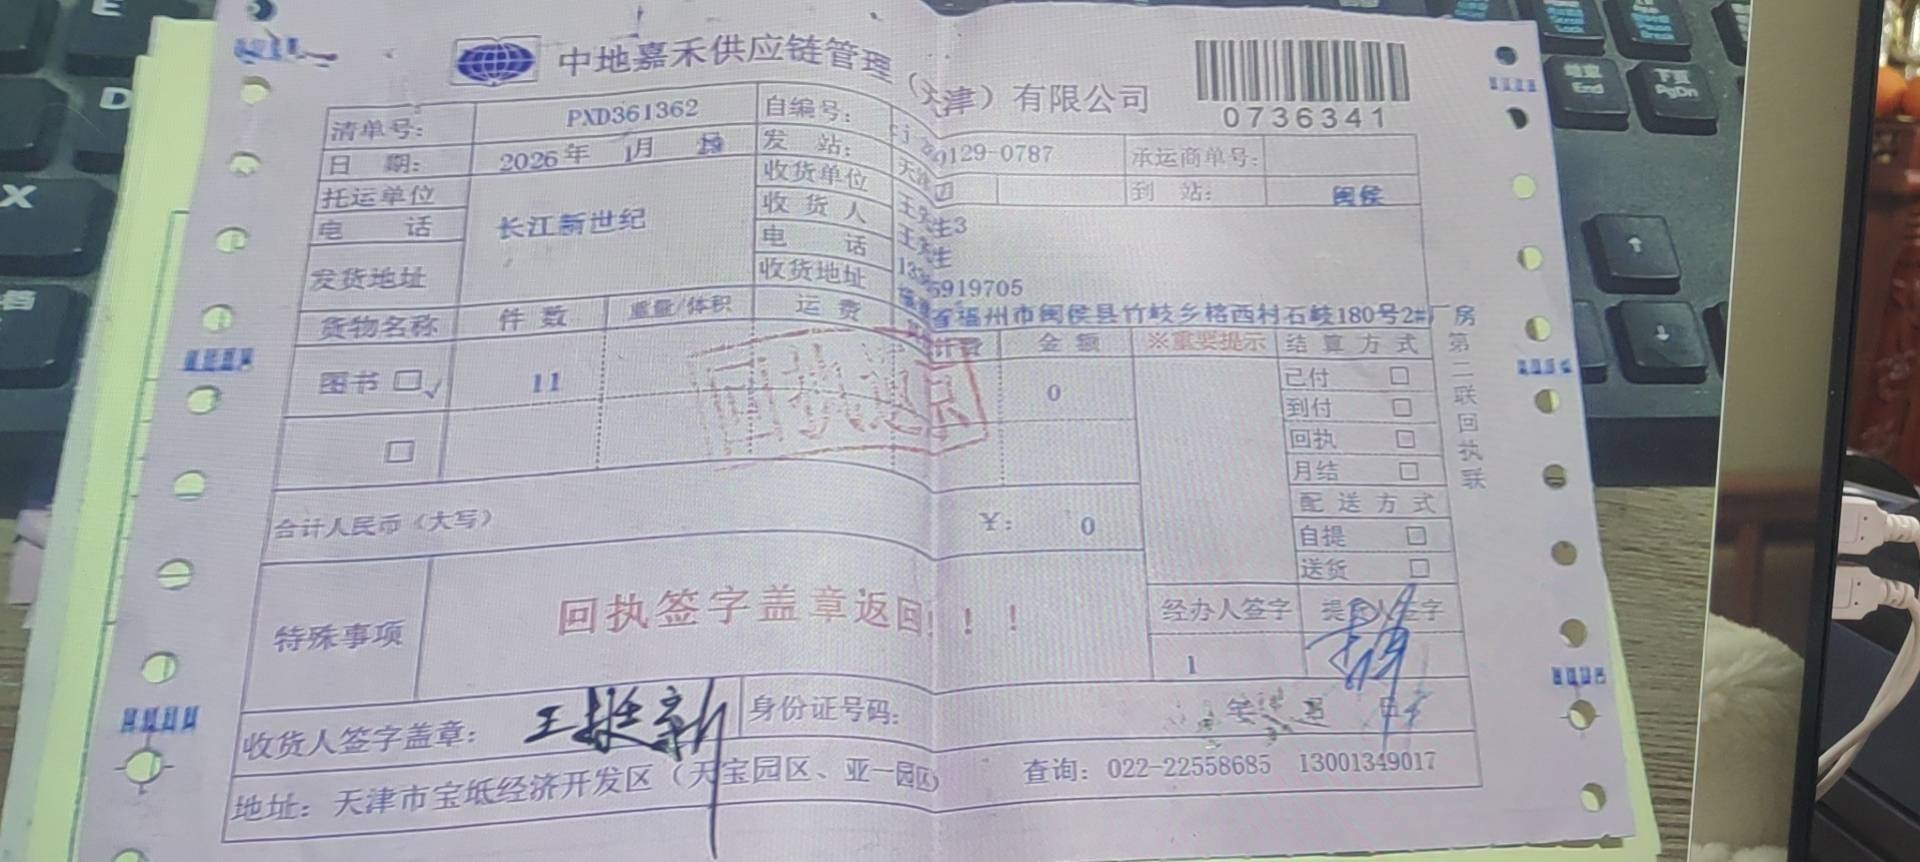 中地嘉禾供应链管理（天津）有限公司
0736341
清单号： PXD361362 自编号： 0129-0787 承运商单号：
日 期： 2026年 1月 发 站： 天津 到 站： 闽侯
托运单位 长江新世纪 收货单位 王先生3
电 话 收 货 人 王先生
发货地址 电 话 5919705
收货地址 省福州市闽侯县竹岐乡榕西村石岐180号2#厂房
货物名称 件 数 重量/体积 运 费 计费 金 额 ※重要提示 结 算 方 式
图书 □√ 11 0 已付 □
到付 □
□ 回执 □
月结 □
回执返回
第二联回执联
合计人民币（大写） ￥： 0 配 送 方 式
自提 □
送货 □
特殊事项 回执签字盖章返回！！！ 经办人签字 提货人签字
1
收货人签字盖章： 王挺新 身份证号码：
地址：天津市宝坻经济开发区（天宝园区、亚一园区） 查询：022-22558685 13001349017
End
PgDn